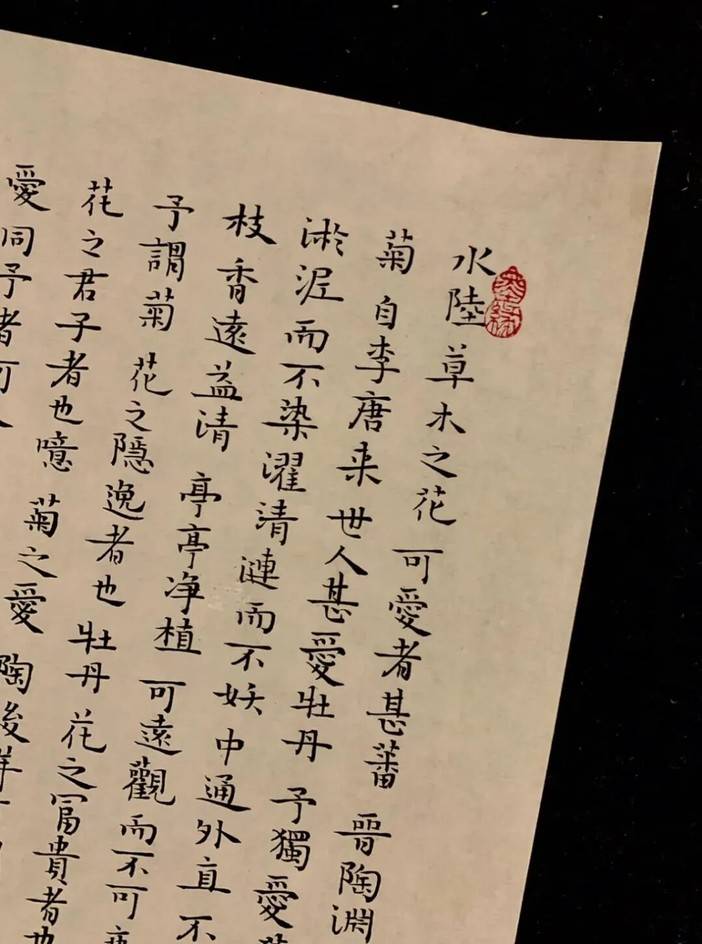 水陸草木之花可愛者甚蕃晉陶淵
菊自李唐来世人甚愛牡丹予獨愛
淤泥而不染濯清漣而不妖中通外直不
枝香遠益清亭亭净植可遠觀而不可
予謂菊花之隠逸者也牡丹花之冨貴者也
花之君子者也噫菊之愛陶後鮮
愛同予者